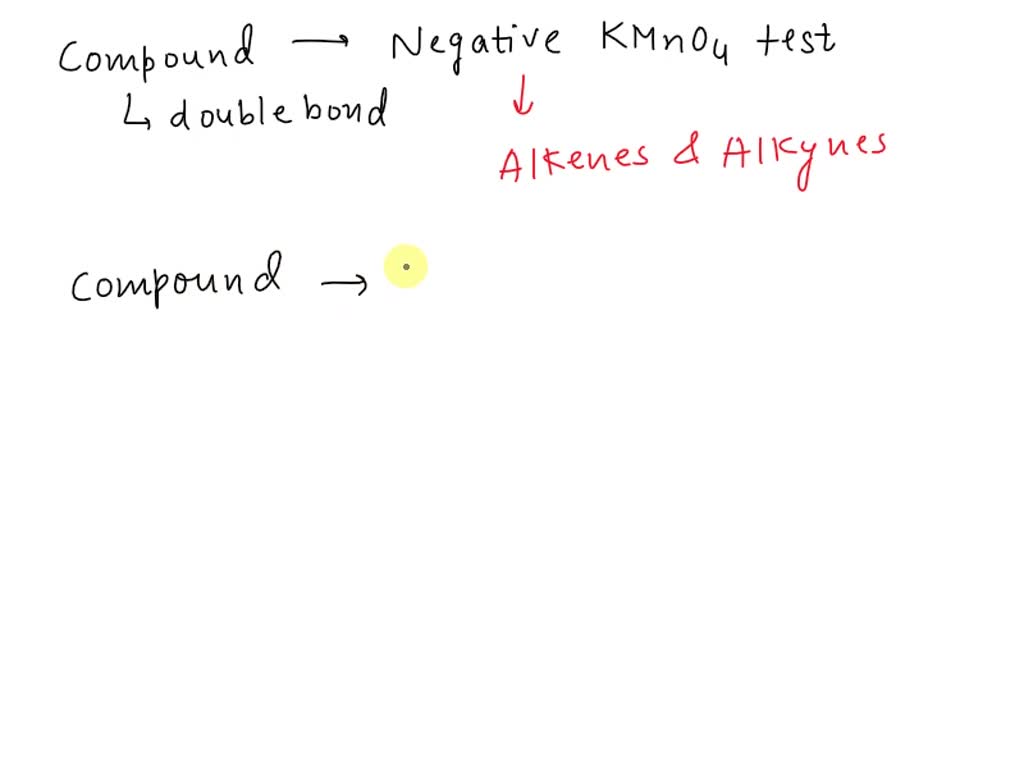 Compound → Negative KMnO4 test
↳ double bond
↓
Alkenes & Alkynes
Compound →